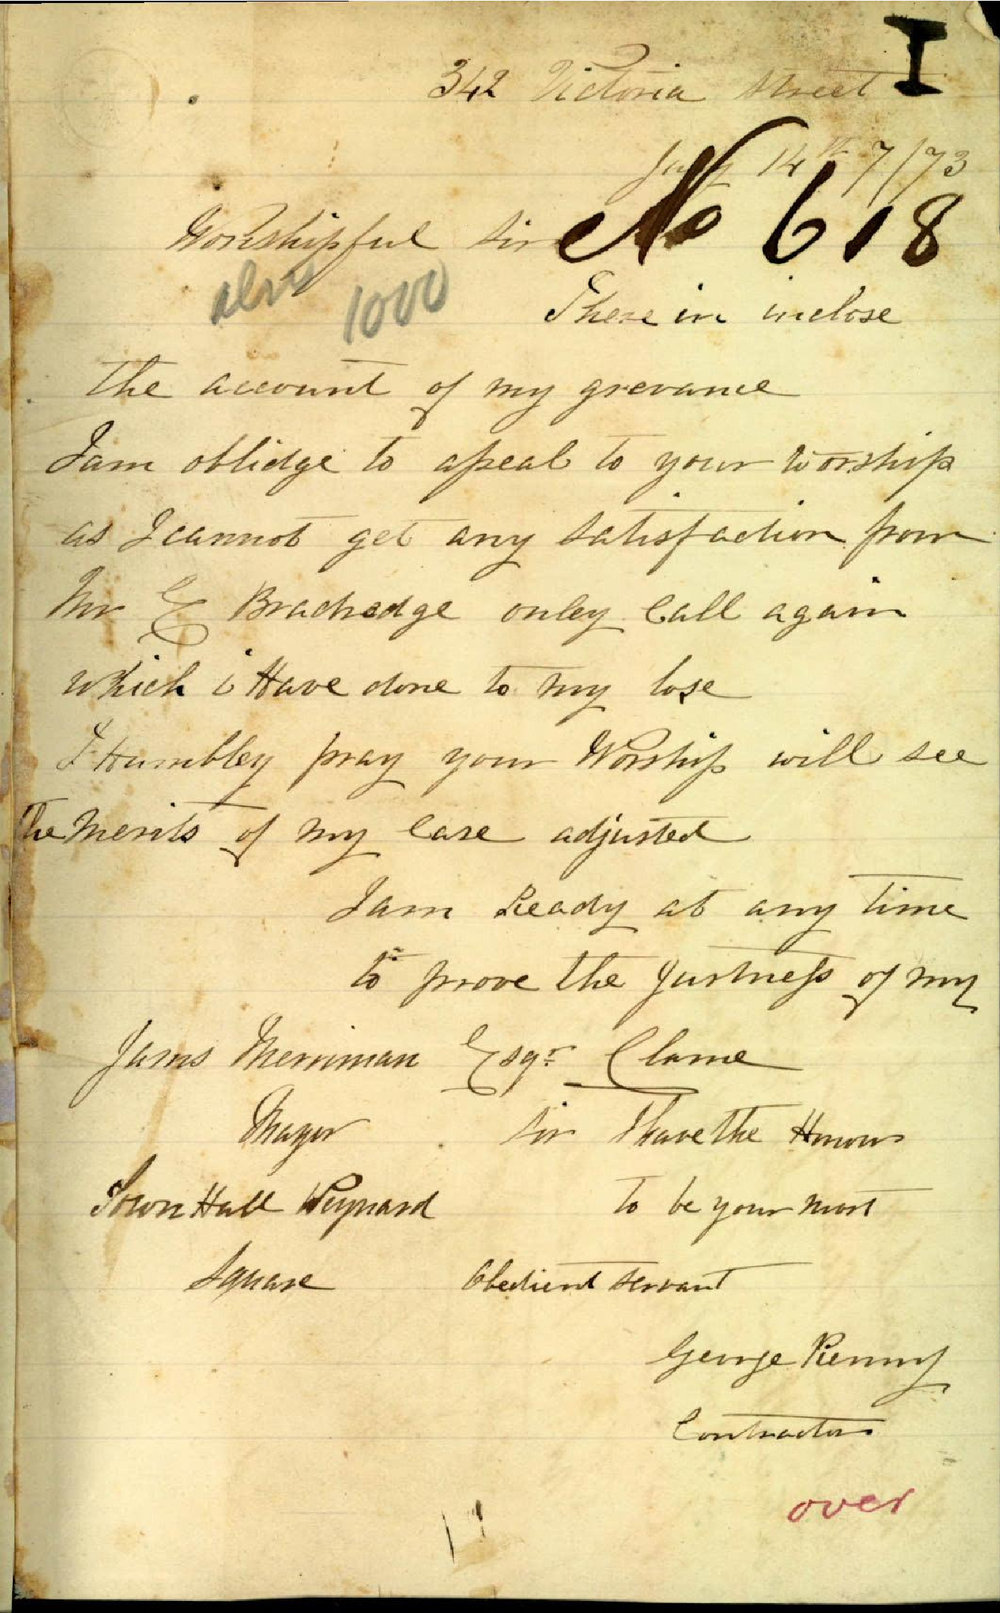 I
342 Victoria Street
July 14th 7/73
No 618
Worshipful Sir
also 1000
There in inclose
the account of my grevance
I am oblidge to apeal to your Worship
as I cannot get any satisfaction from
Mr E Bradredge onley Call again
which i Have done to my lose
I Humbley pray your Worship will see
the Merits of my Case adjusted
I am Ready at any time
to prove the Justness of my
Clame
Jams Merriman Esqr
Mayor
Town Hall Wynyard
Square
Sir I have the Honour
to be your most
Obedient Servant
George Renny
Contractor
over